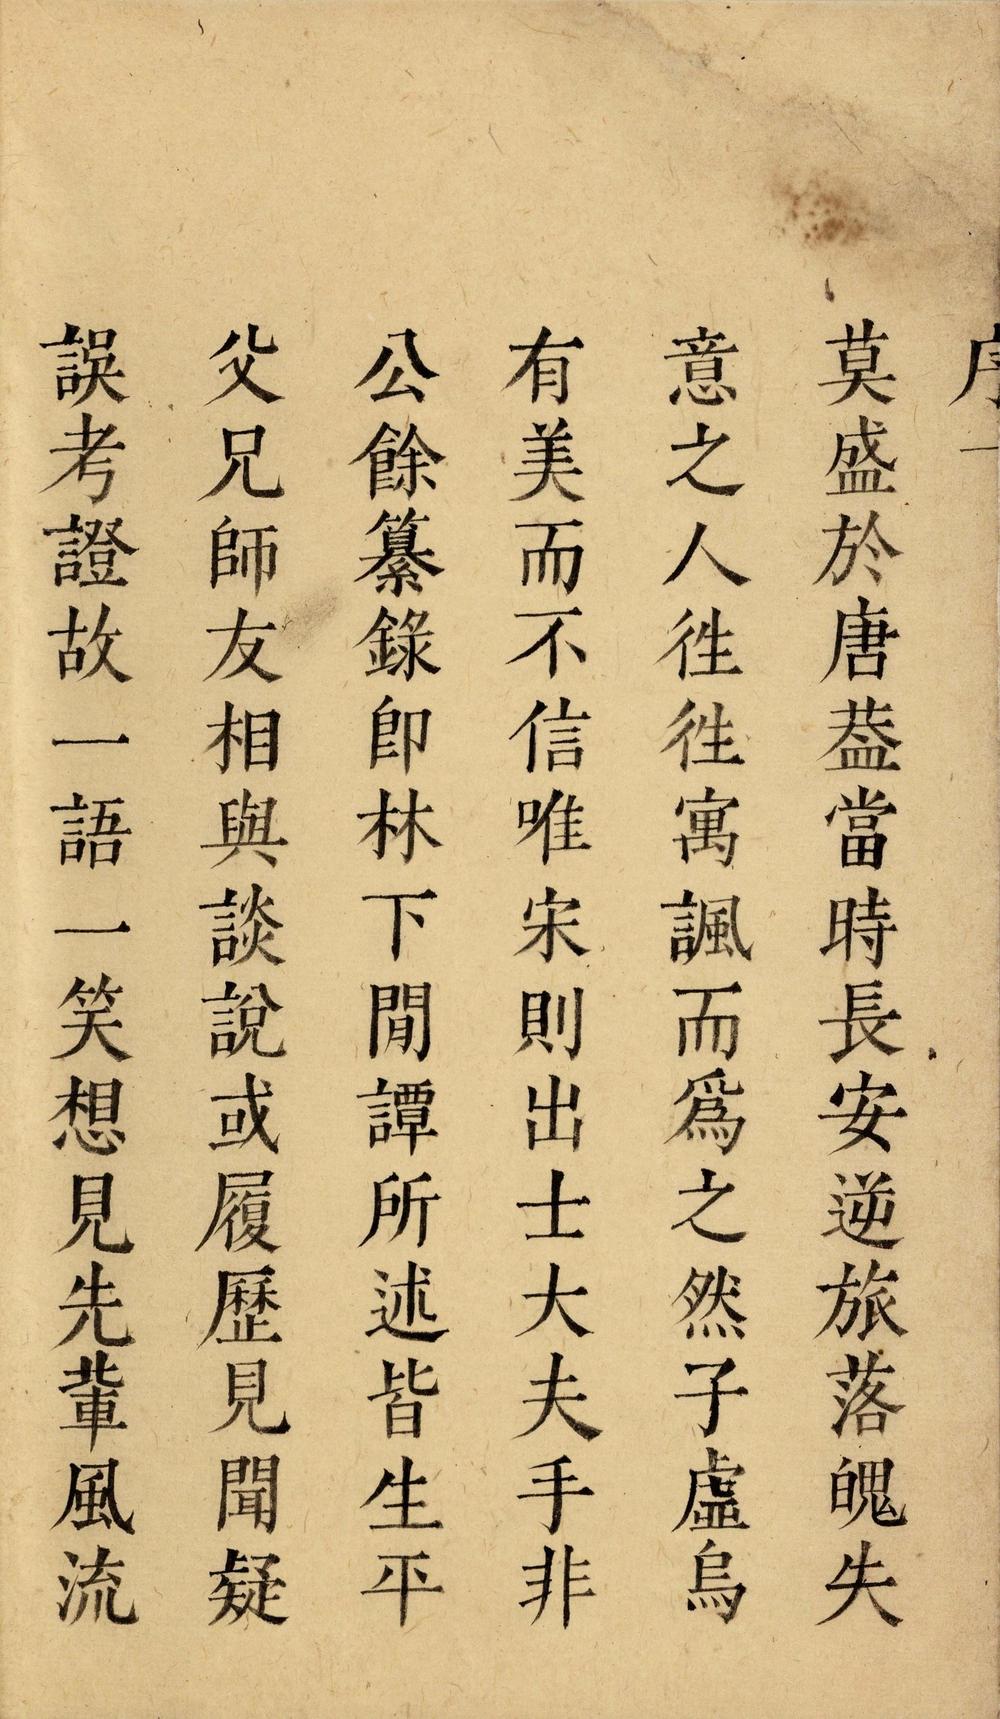 序一
莫盛於唐葢當時長安逆旅落魄失
意之人徃徃寓諷而爲之然子虛烏
有美而不信唯宋則出士大夫手非
公餘纂錄卽林下閒譚所述皆生平
父兄師友相與談說或履歷見聞疑
誤考證故一語一笑想見先輩風流